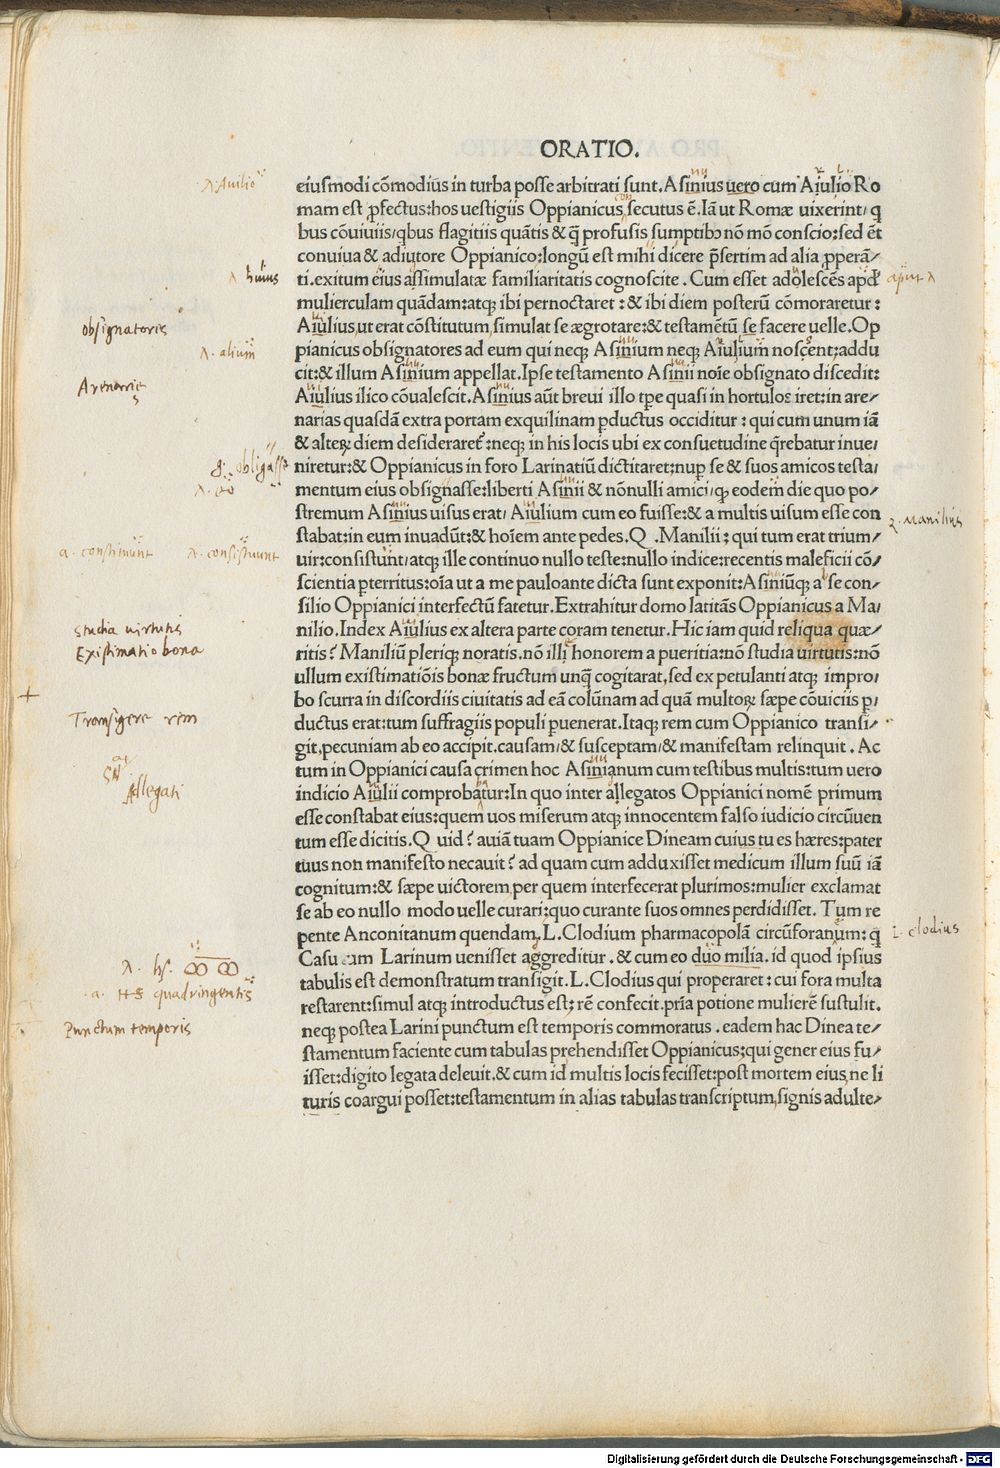 ORATIO.
eiusmodi cōmodius in turba posse arbitrati sunt. Asinius uero cum Aiulio Ro
mam est ꝓfectus: hos uestigiis Oppianicus secutus ē. Iā ut Romæ uixerint, q
bus cōuiuiis, qbus flagitiis quātis & q̄ profusis sumptibꝰ nō mō conscio: sed ēt
conuiua & adiutore Oppianico: longū est mihi dicere p̄sertim ad alia ꝓperā/
ti. exitum eius assimulatæ familiaritatis cognoscite. Cum esset adolescēs apd
mulierculam quādam: atqꝫ ibi pernoctaret: & ibi diem posterū cōmoraretur:
Aiulius, ut erat cōstitutum, simulat se ægrotare: & testamētū se facere uelle. Op
pianicus obsignatores ad eum qui neqꝫ Asinium neqꝫ Aiulium noscent: addu
cit: & illum Asinium appellat. Ipse testamento Asinii noīe obsignato discedit:
Aiulius ilico cōualescit. Asinius aūt breui illo tꝑe quasi in hortulos iret: in are/
narias quasdā extra portam exquilinam ꝑductus occiditur: qui cum unum iā
& alteꝝ diem desideraret᷑: neqꝫ in his locis ubi ex consuetudine q̄rebatur inue/
niretur: & Oppianicus in foro Larinatiū dictitaret: nuꝑ se & suos amicos testa/
mentum eius obsignasse: liberti Asinii & nōnulli amici, qꝫ eodem die quo po/
stremum Asinius uisus erat, Aiulium cum eo fuisse: & a multis uisum esse con
stabat: in eum inuadūt: & hoīem ante pedes. Q. Manilii; qui tum erat trium/
uir: consistunt: atqꝫ ille continuo nullo teste: nullo indice: recentis maleficii cō/
scientia ꝑterritus: oīa ut a me pauloante dicta sunt exponit: Asiniūqꝫ a se con/
silio Oppianici interfectū fatetur. Extrahitur domo latitās Oppianicus a Ma/
nilio. Index Aiulius ex altera parte coram tenetur. Hic iam quid reliqua quæ/
ritis? Maniliū pleriqꝫ noratis. nō illi honorem a pueritia: nō studia uirtutis: nō
ullum existimatiōis bonæ fructum unq̄ cogitarat, sed ex petulanti atqꝫ impro/
bo scurra in discordiis ciuitatis ad eā colūnam ad quā multoꝝ sæpe cōuiciis ꝑ/
ductus erat: tum suffragiis populi ꝑuenerat. Itaqꝫ rem cum Oppianico transi/
git, pecuniam ab eo accipit. causam, & susceptam, & manifestam relinquit. Ac
tum in Oppianici causa crimen hoc Asinianum cum testibus multis: tum uero
indicio Aiulii comprobatur: In quo inter allegatos Oppianici nomē primum
esse constabat eius: quem uos miserum atqꝫ innocentem falso iudicio circūuen
tum esse dicitis. Quid? auiā tuam Oppianice Dineam cuius tu es hæres: pater
tuus non manifesto necauit? ad quam cum adduxisset medicum illum suū iā
cognitum: & sæpe uictorem, per quem interfecerat plurimos: mulier exclamat
se ab eo nullo modo uelle curari; quo curante suos omnes perdidisset. Tum re
pente Anconitanum quendam, L. Clodium pharmacopolā circūforanum: q
Casu cum Larinum uenisset aggreditur. & cum eo duo milia. id quod ipsius
tabulis est demonstratum transigit. L. Clodius qui properaret: cui fora multa
restarent: simul atqꝫ introductus est; rē confecit. prīa potione mulierē sustulit.
neqꝫ postea Larini punctum est temporis commoratus. eadem hac Dinea te/
stamentum faciente cum tabulas prehendisset Oppianicus; qui gener eius fu/
isset: digito legata deleuit. & cum id multis locis fecisset: post mortem eius, ne li
turis coargui posset: testamentum in alias tabulas transcriptum, signis adulte/
λ Auilio
λ huius
apud λ
obsignatoris
λ. alium
Arenarie
g. obligasse
λ. eo
Q. Manilius
a. constituunt λ. consistuunt
studia uirtutis
Existimatio bona
Transigere rem
Allegati
L. Clodius
λ. hs. ꝏ ꝏ
a. HS quadringentis
Punctum temporis
Digitalisierung gefördert durch die Deutsche Forschungsgemeinschaft - DFG